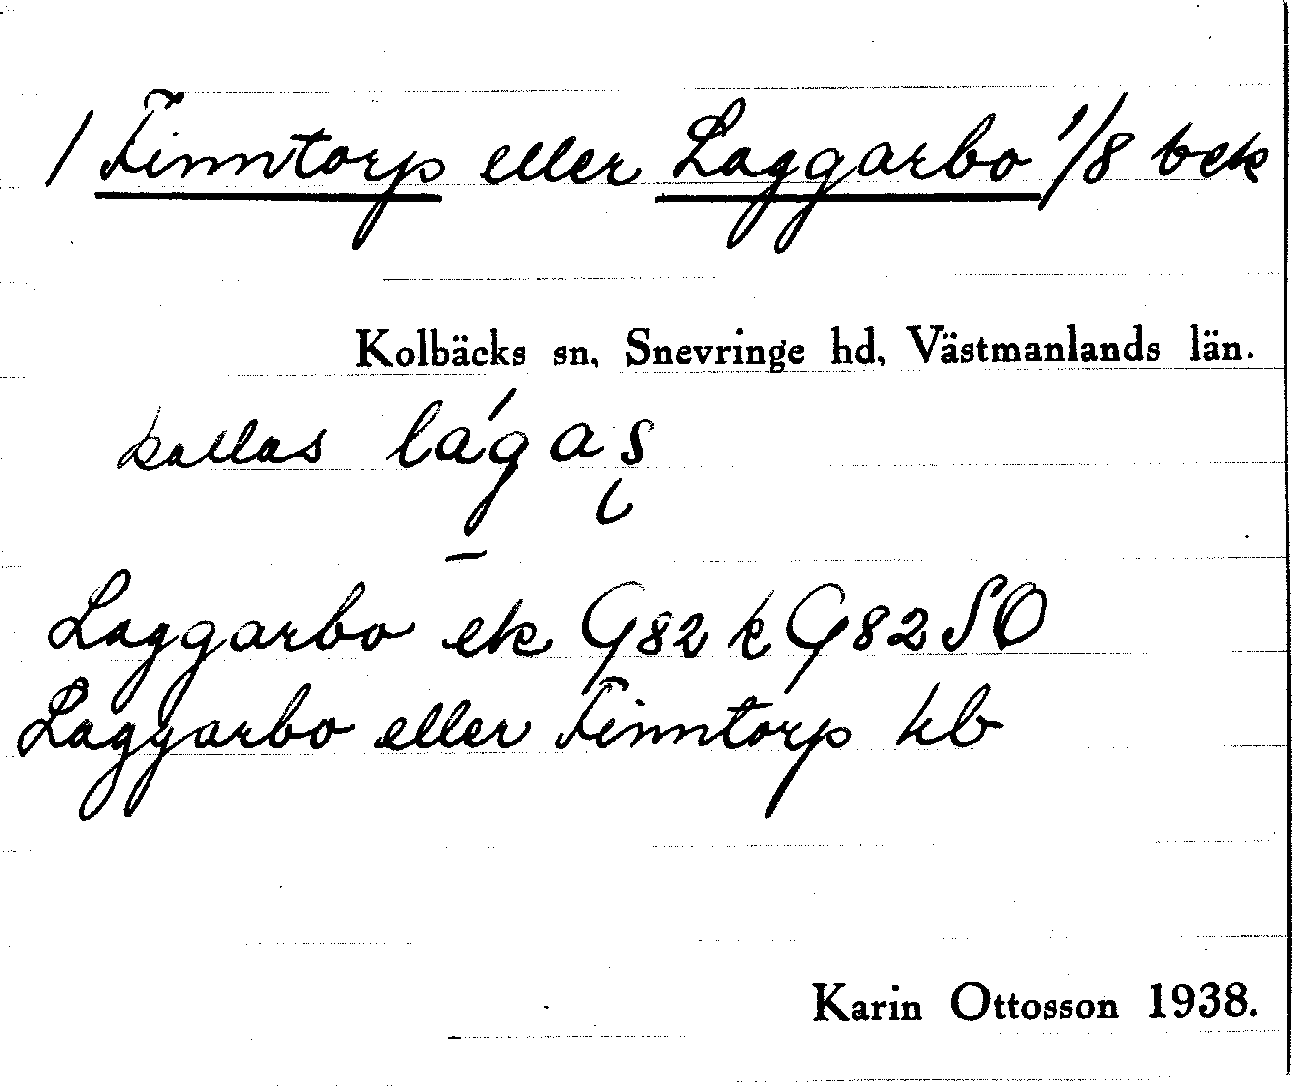 / Finntorp eller Laggarbo 1/8 bek
Kolbäcks sn, Snevringe hd, Västmanlands län.
kallas
Laggarbo ek G82 k G82 SO
Laggarbo eller Finntorp kb
Karin Ottosson 1938.